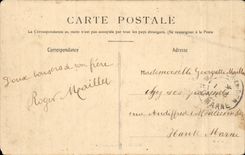 CARTE POSTALE
La Correspondance au recto n'est pas acceptée par tous les pays étrangers. (Se renseigner à la Poste)
Correspondance
Adresse
Doux baisers de ton frère
Roger Mailley
Mademoiselle Georgette Mailley
chez ses parents
rue
Haute Marne
MARNE